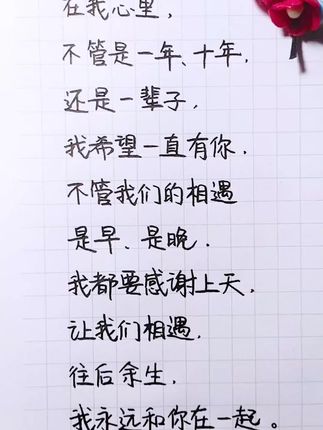 在我心里，
不管是一年、十年，
还是一辈子，
我希望一直有你．
不管我们的相遇
是早、是晚．
我都要感谢上天，
让我们相遇．
往后余生，
我永远和你在一起。